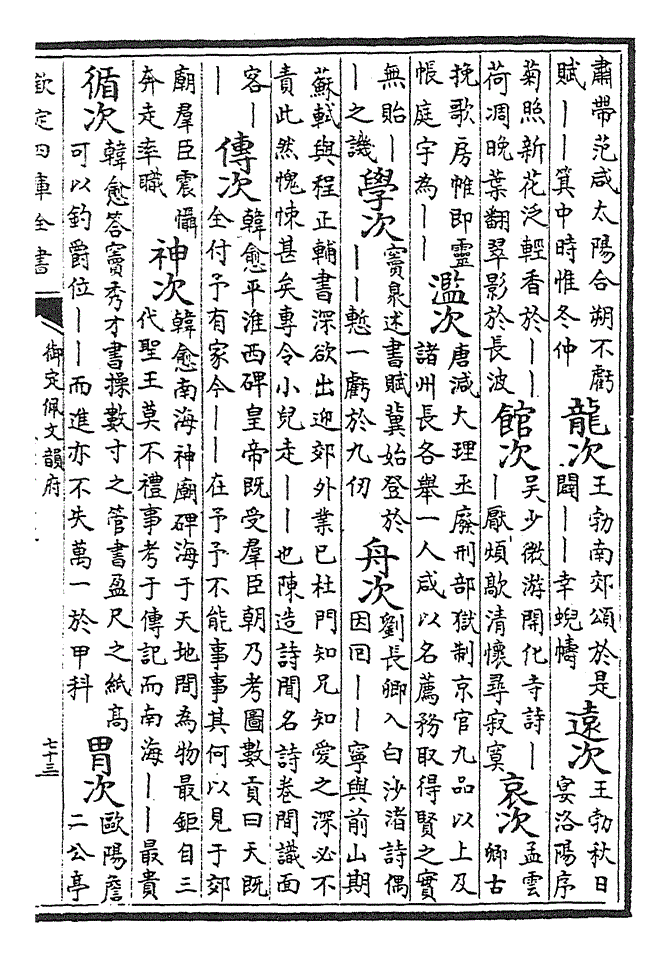 肅帶范咸太陽合朔不虧賦——箕中時惟冬仲 龍次 王勃南郊頌於是闢——幸蜺幬 遠次 王勃秋日宴洛陽序
菊照新花泛輕香於——荷凋晚葉翻翠影於長波 館次 吳少微游開化寺詩——厭煩歊清懷尋寂寞 哀次 孟雲卿古
挽歌房帷即靈帳庭宇為—— 濫次 唐減大理丞廢刑部獄制京官九品以上及諸州長各舉一人咸以名薦務取得賢之實
無貽——之譏 學次 竇臮述書賦冀始登於——慙一虧於九仞 舟次 劉長卿入白沙渚詩偶因回——寧與前山期
蘇軾與程正輔書深欲出迎郊外業已杜門知兄知愛之深必不責此然愧悚甚矣專令小兒走——也陳造詩聞名詩卷間識面
客—— 傳次 韓愈平淮西碑皇帝既受羣臣朝乃考圖數貢曰天既全付予有家今——在予予不能事事其何以見于郊
廟羣臣震懾奔走率職 神次 韓愈南海神廟碑海于天地間為物最鉅自三代聖王莫不禮事考于傳記而南海——最貴
循次 韓愈答竇秀才書操數寸之管書盈尺之紙高可以釣爵位——而進亦不失萬一於甲科 胃次 歐陽詹二公亭
欽定四庫全書
御定佩文韻府
七十三